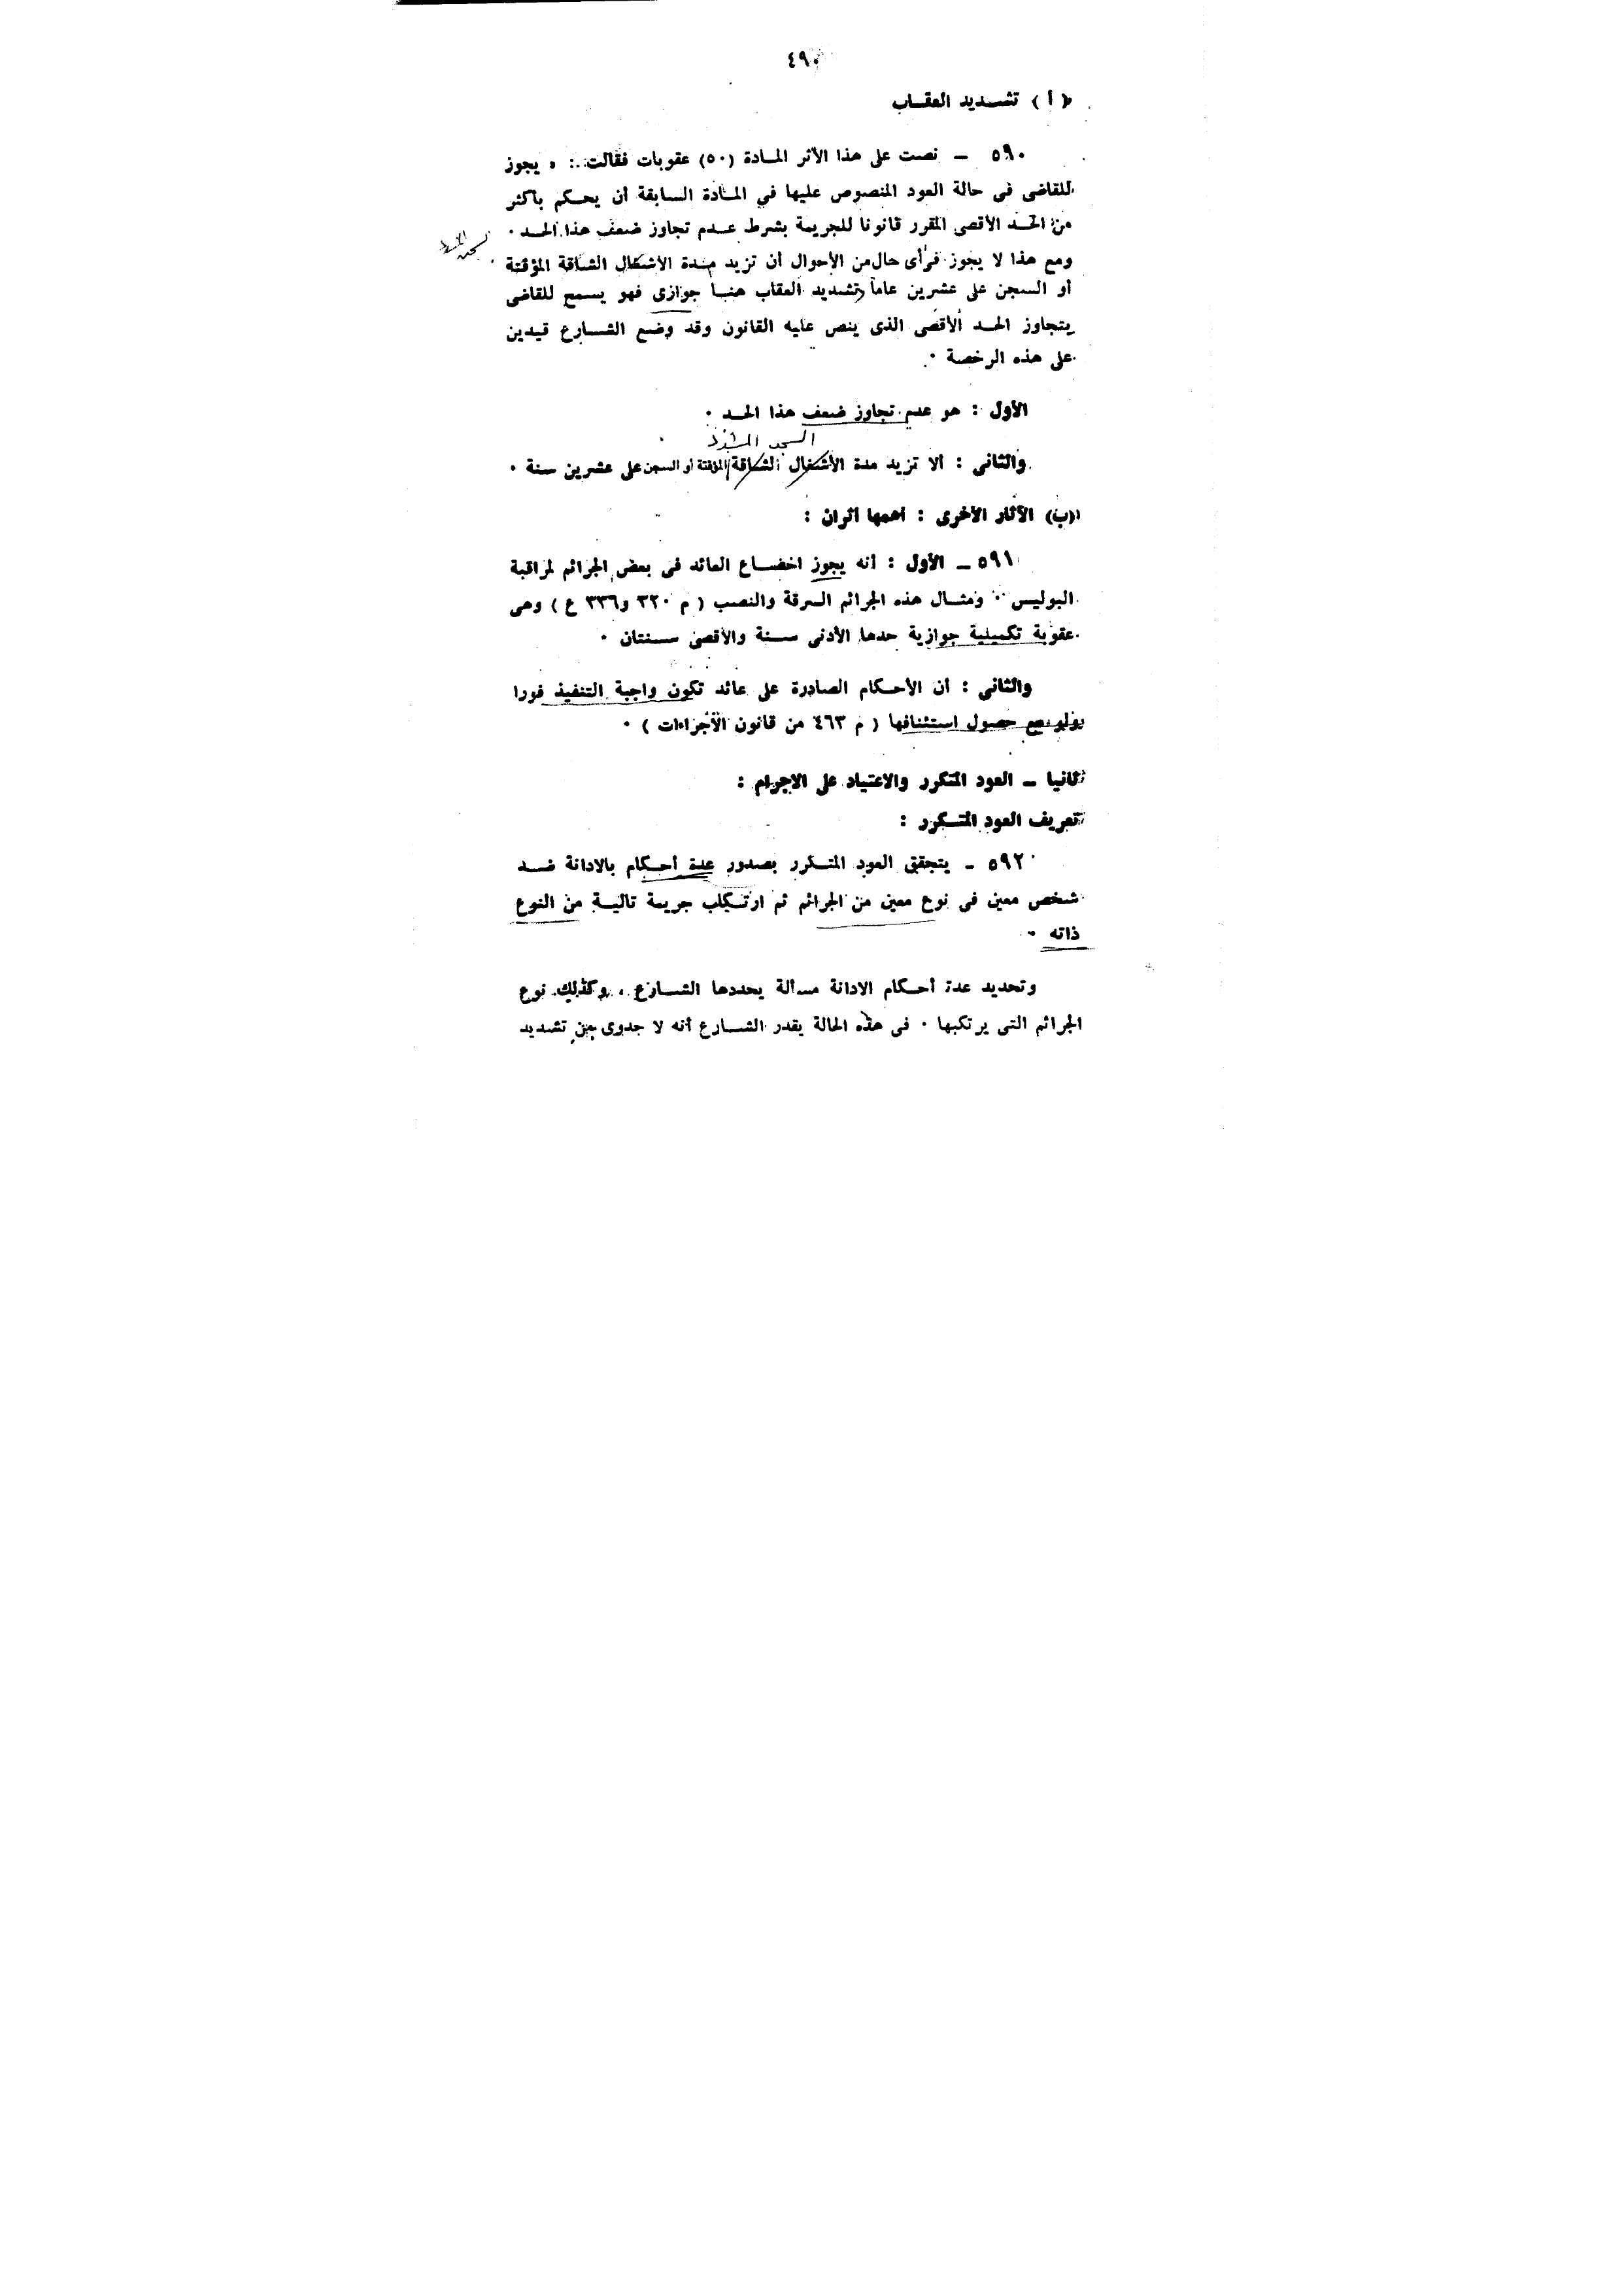 ٤٩٠
( أ ) تشديد العقاب
٥٩٠ – نصت على هذا الأثر المادة (٥٠) عقوبات فقالت : « يجوز
للقاضى فى حالة العود المنصوص عليها في المادة السابقة أن يحكم بأكثر
من الحد الأقصى المقرر قانونا للجريمة بشرط عدم تجاوز ضعف هذا الحد ٠
ومع هذا لا يجوز فى أى حال من الأحوال أن تزيد مدة الأشغال الشاقة المؤقتة
السجن
أو السجن على عشرين عاما وتشديد العقاب هنا جوازى فهو يسمح للقاضى
يتجاوز الحد الأقصى الذى ينص عليه القانون وقد وضع الشارع قيدين
على هذه الرخصة ٠
الأول : هو عدم تجاوز ضعف هذا الحد ٠
السجن المشدد
والثانى : ألا تزيد مدة الأشغال الشاقة المؤقتة أو السجن على عشرين سنة ٠
(ب) الآثار الأخرى : أهمها أثران :
٥٩١ – الأول : أنه يجوز اخضاع العائد فى بعض الجرائم لمراقبة
البوليس ٠٠ ومثال هذه الجرائم السرقة والنصب ( م ٣٢٠ و٣٣٦ ع ) وهى
عقوبة تكميلية جوازية حدها الأدنى سنة والأقصى سنتان ٠
والثانى : أن الأحكام الصادرة على عائد تكون واجبة التنفيذ فورا
ولو مع حصول استئنافها ( م ٤٦٣ من قانون الأجراءات ) ٠
ثانيا – العود المتكرر والاعتياد على الاجرام :
تعريف العود المتكرر :
٥٩٢ – يتحقق العود المتكرر بصدور عدة أحكام بالادانة ضد
شخص معين فى نوع معين من الجرائم ثم ارتكاب جريمة تالية من النوع
ذاته ٠
وتحديد عدة أحكام الادانة مسألة يحددها الشارع ، وكذلك نوع
الجرائم التى يرتكبها ٠ فى هذه الحالة يقدر الشارع أنه لا جدوى من تشديد